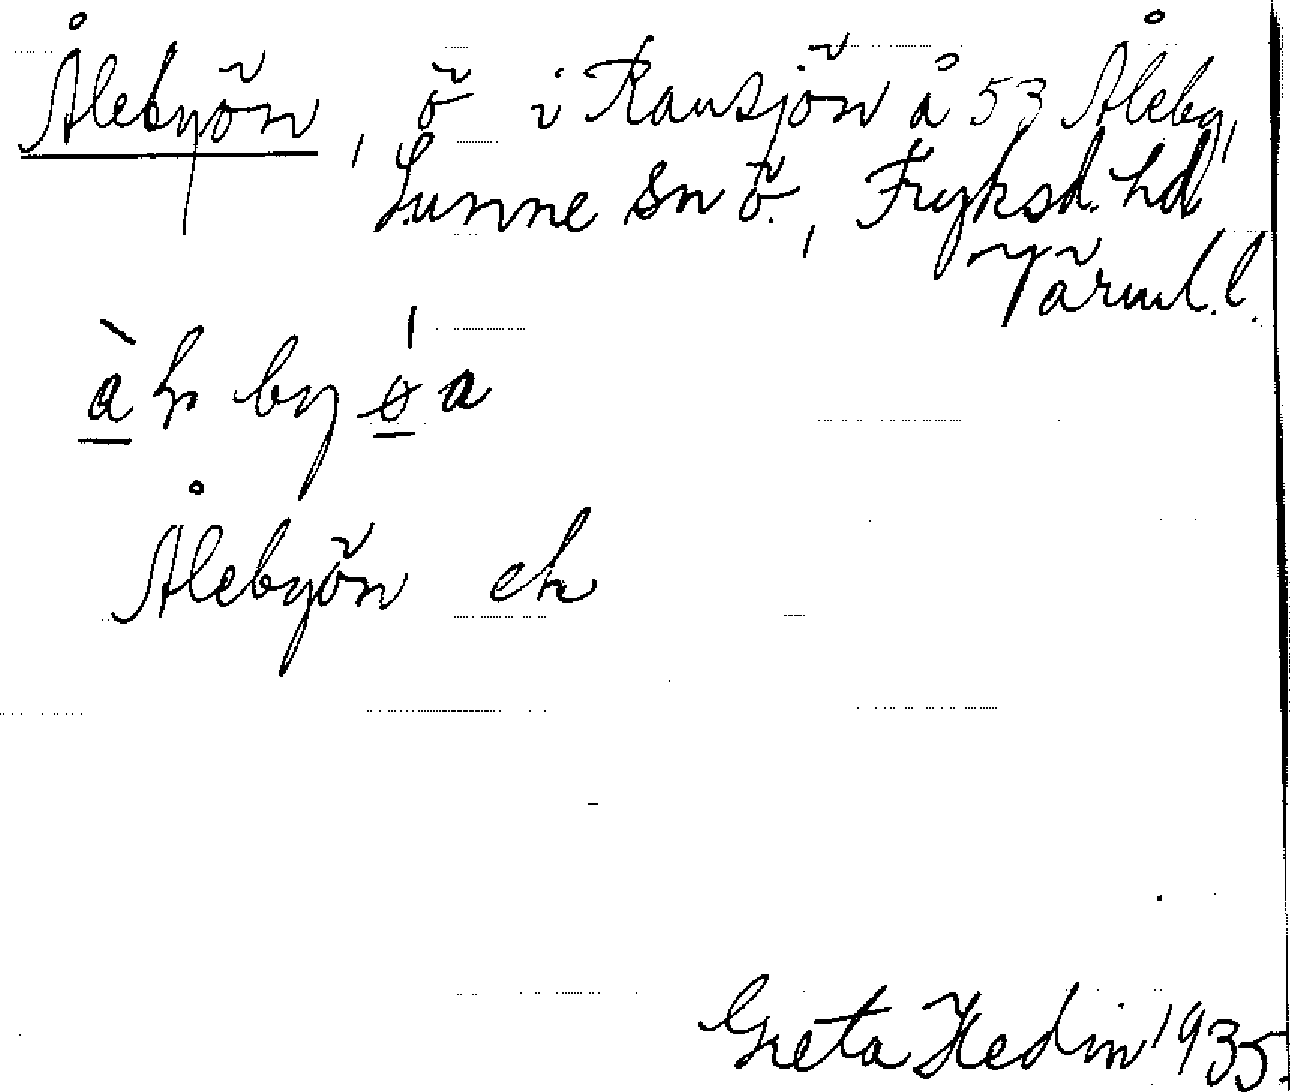 Ålebyön, ö i Ransjön å 53 Åleby,
Sunne sn ö., Fryksd. hd,
Värml.l.
Ålebyön ek
Greta Hedin 1935.